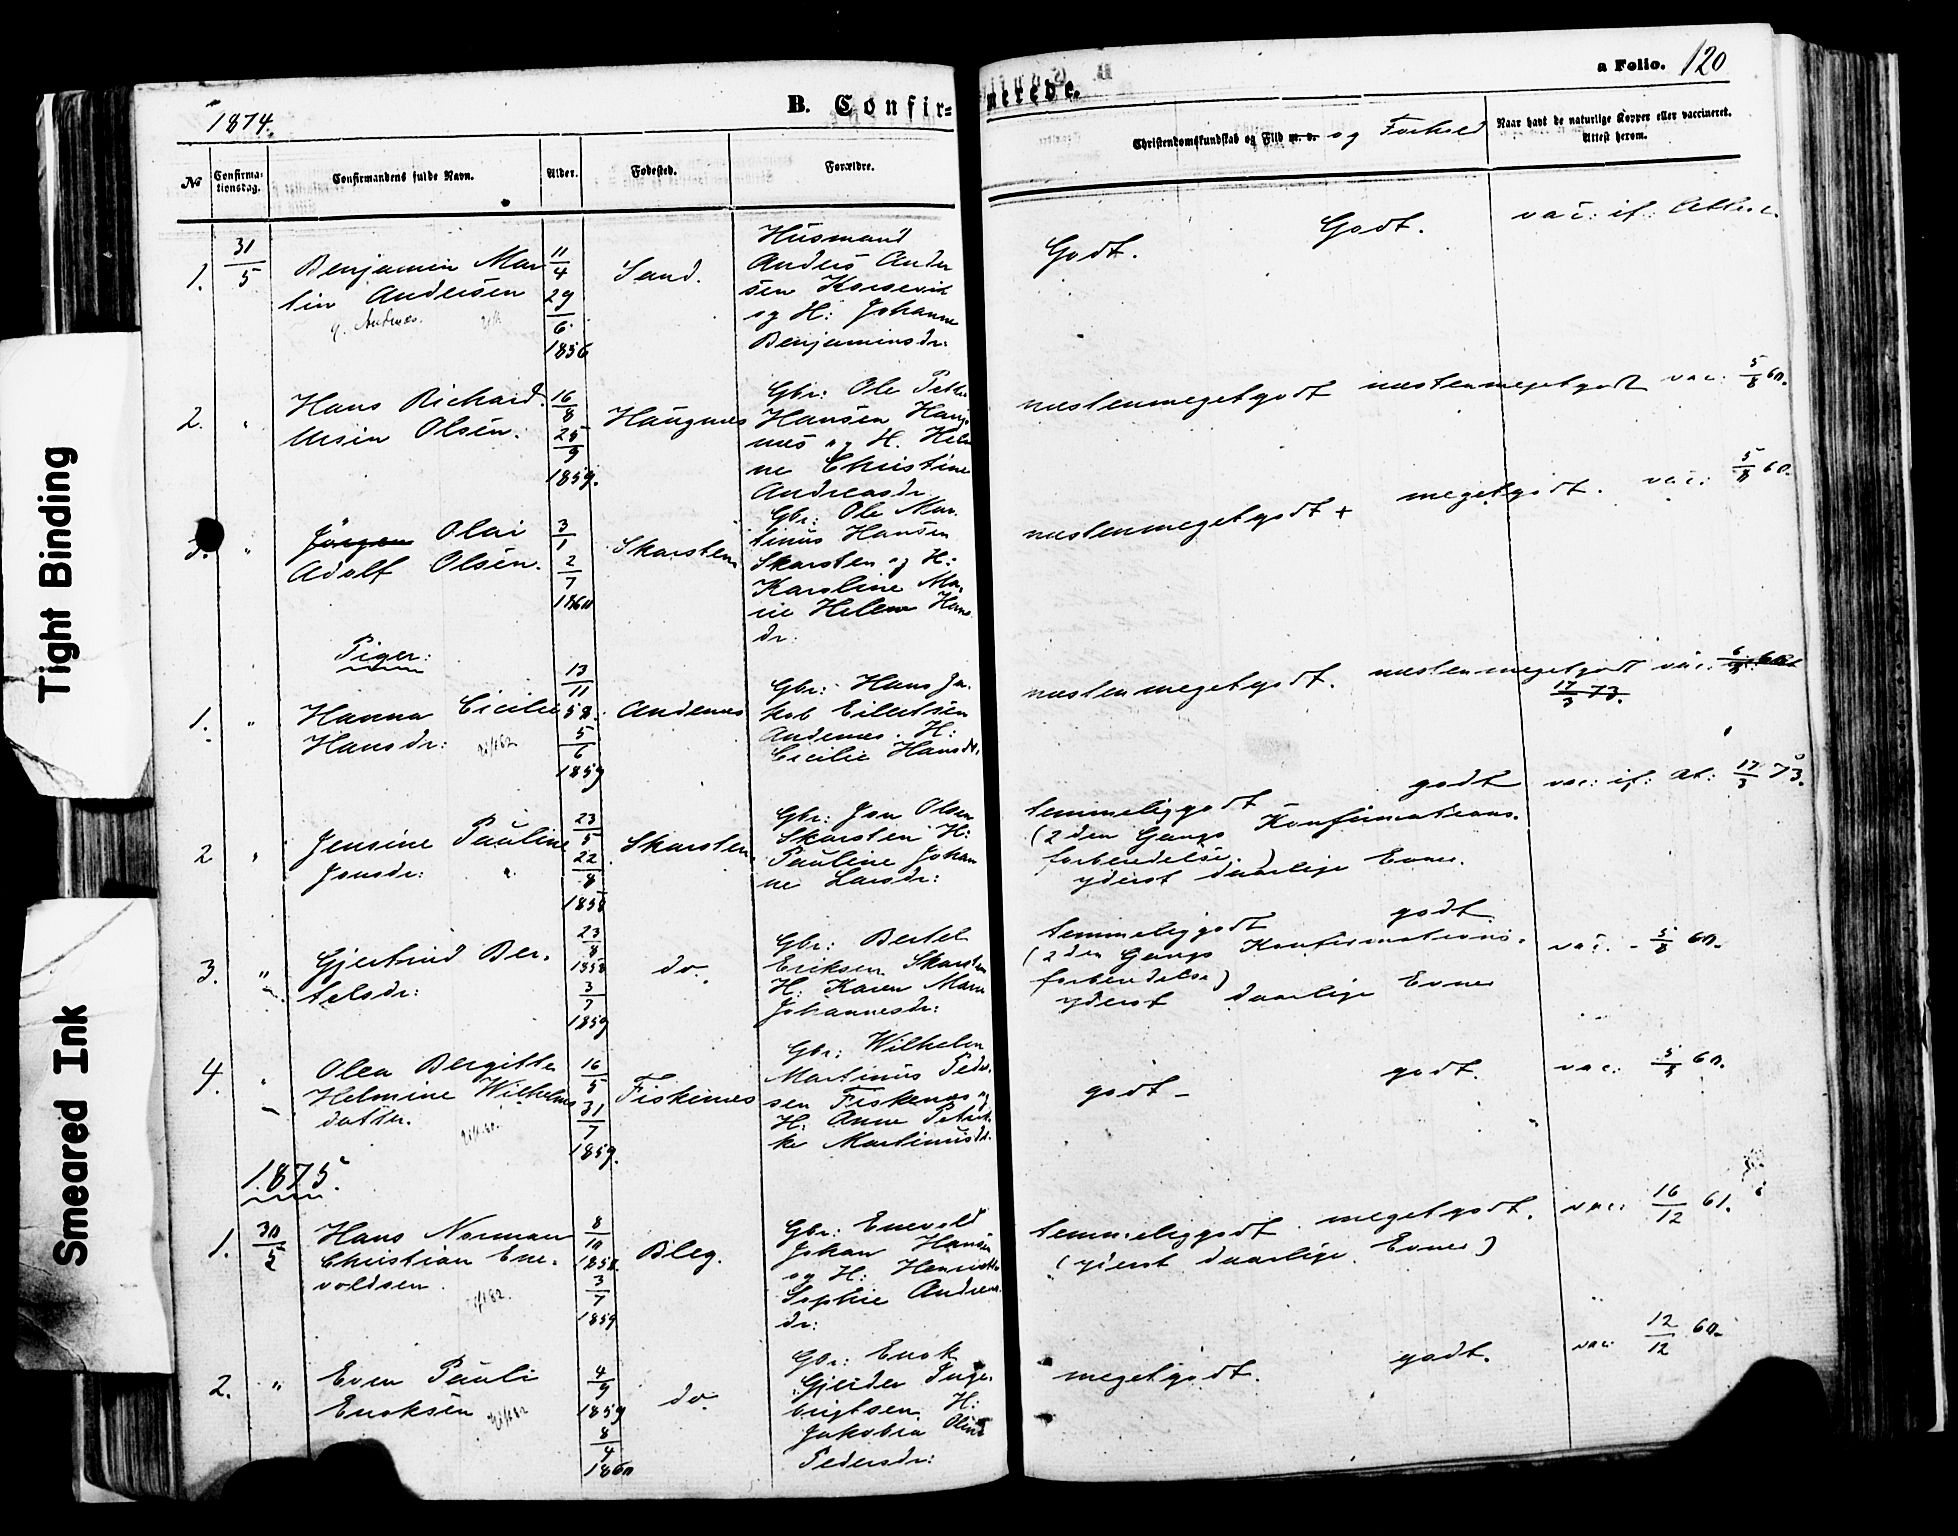 1874.
B. Confir=
merede.
a Folio. 120
No
Confirma-
tionsdag.
Confirmandens fulde Navn.
Alder.
Fødested.
Forældre.
Christendomskundskab og Flid m. v. og Forhold
Naar havt de naturlige Kopper eller vaccineret.
Attest herom.
1.
31/5
Benjamin Mar
tin Andersen
11/4
29/6
1856
Sand.
Husmand
Anders Ander
sen
og H: Johanne
Benjaminsdr:
Godt.
Godt.
vac: if: Attest.
2.
"
Hans Richard
Olsen.
16/8
25/9
1859.
Haugnes
Gbr: Ole Petter
Hansen Haug
nes og H. Hele
ne Christine
Andreasdr
næstenmegetgodt
næstenmegetgodt
vac: 5/8 60.
3.
"
Jörgen Olai
Adolf Olsen.
3/1
2/7
1860
Skarsten
Gbr: Ole Mar
tinus Hansen
Skarsten og H:
Karoline Ma
rie Helene Hans
dr:
næstenmegetgodt +
megetgodt.
vac: 5/8 60.
Piger:
1.
"
Hanna Cicilie
Hansdr:
13/11
58.
5/6
1859
Andenes
Gbr: Hans Ja
kob Eilertsen
Andenes. H:
Cicilie Hansdr.
næstenmegetgodt.
næstenmegetgodt
vac:
17/3 73.
2
"
Jensine Pauline
Jonsdr:
23/5
22/8
1858
Skarsten.
Gbr: Jon Olsen
Skarsten H:
Pauline Johan
ne Larsdr:
temmeliggodt
godt
(2den Gangs Konfirmations.
forberedelse.)
yderst daarlige Evner.
vac: if: At: 17/3 73.
3.
"
Gjertrud Ber.
telsdr:
23/8
1858
3/7
1859
do.
Gbr: Bertel
Eriksen Skarsten
H: Karen Marie
Johannesdr:
temmeliggodt
godt.
(2den Gangs Konfirmations.
forberedelse)
yderst daarlige Evner
vac. - 5/8 60.
4.
"
Olea Bergitte
Helmine Wilhelms
datter.
16/5
31/7
1859.
Fiskenes
Gbr: Wilhelm
Martinus Peder
sen Fiskenes og
H: Anne Petrik
ke Martinusdr.
godt -
godt.
vac: 5/8 60.
1875.
1.
30/5
Hans Norman
Christian Ene.
voldsen.
8/10
1858
3/7
1859
Bleg.
Gbr: Enevold
Johan Hansen
og H: Henriette
Sophie Andreas
dr:
temmeliggodt
megetgodt.
(yderst daarlige Evner)
vac: 16/12 61.
2.
"
Even Pauli
Enoksen
4/9
1859
8/4
1860
do.
Gbr: Enok
Gjerder Inge.
brigtsen. H:
Jakobia Oline
Pedersdr:
megetgodt.
godt.
vac: 12/12 60.
Tight Binding
Smeared Ink